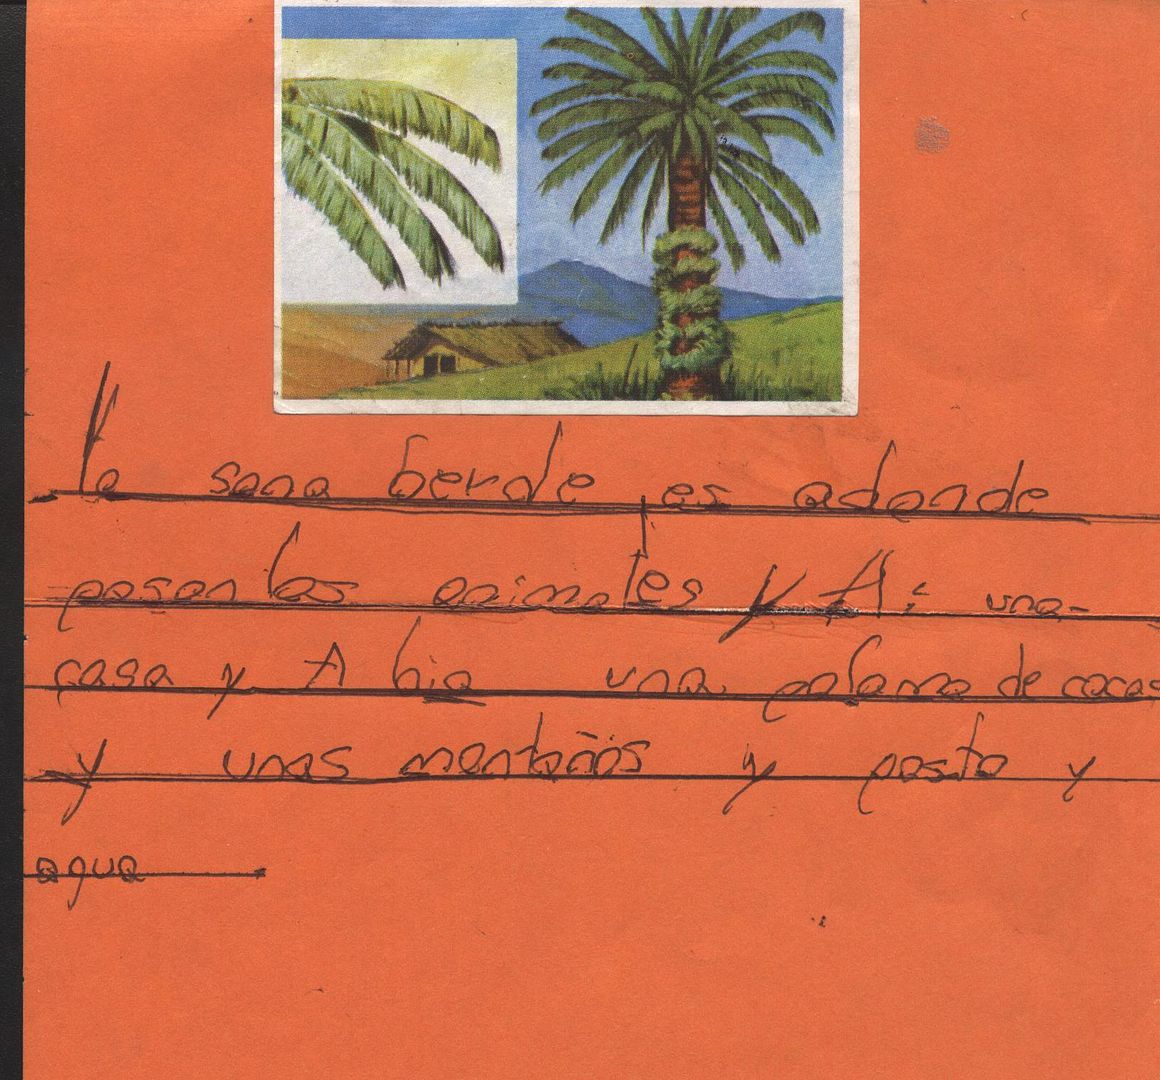 la sana berde es adonde
pasan los animales y A i una
casa y A bia una palama de cocos
y unas montañas y pasto y
agua